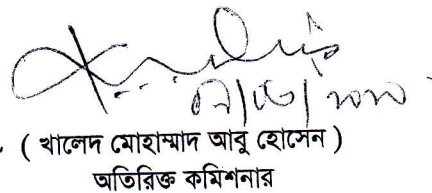 ( খালেদ মোহাম্মাদ আবু হোসেন )
অতিরিক্ত কমিশনার